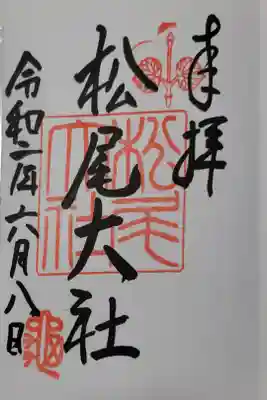 奉拝
松尾大社
松尾大社
令和二年六月八日
亀